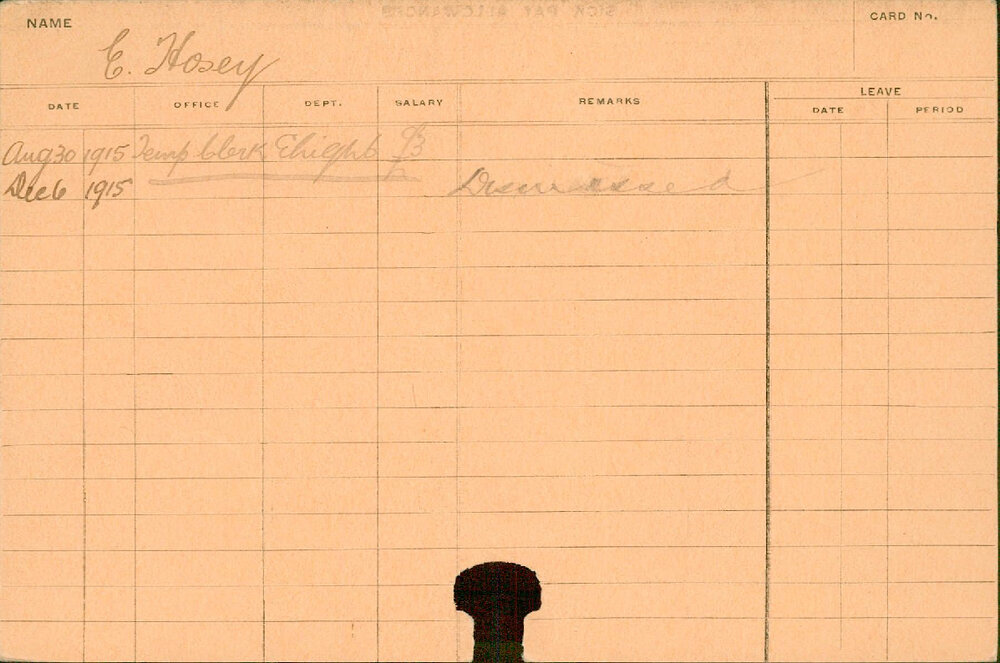 NAME
CARD No.
E. Hosey
DATE OFFICE DEPT. SALARY REMARKS LEAVE
DATE PERIOD
Aug 30 1915 Temp Clerk £3
Dec 6 1915 Dismissed